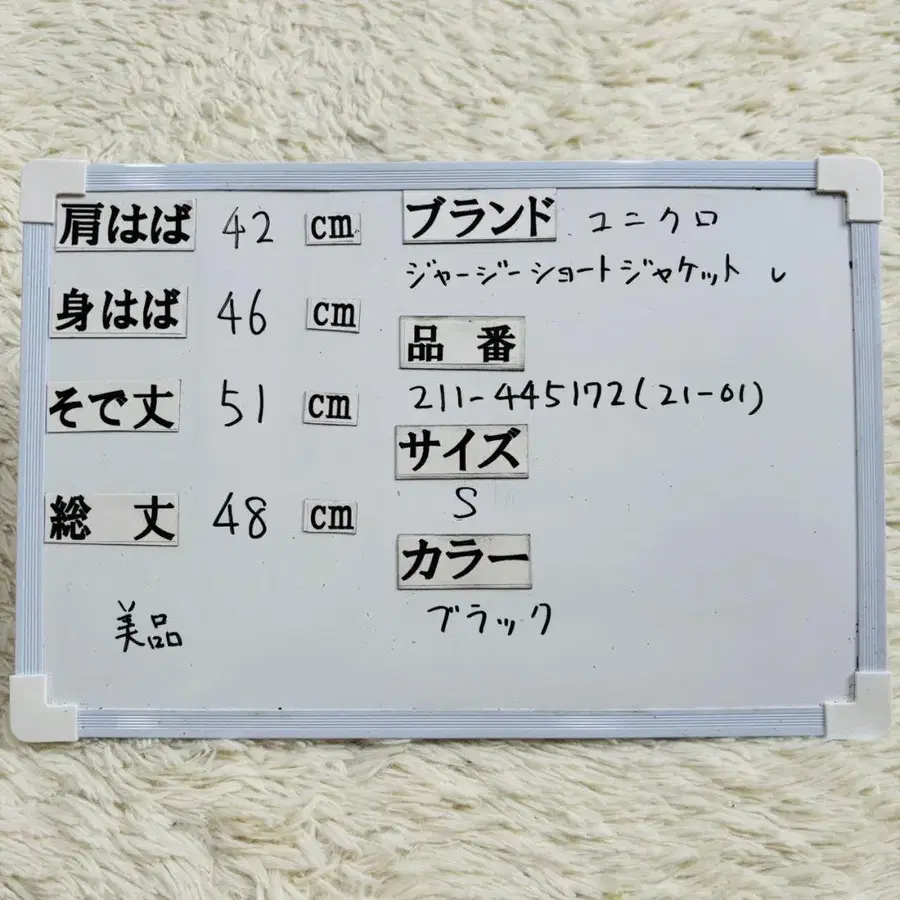 肩はば 42 cm
身はば 46 cm
そで丈 51 cm
総丈 48 cm
美品
ブランド ユニクロ
ジャージーショートジャケット し
品番
211-445172(21-01)
サイズ
S
カラー
ブラック